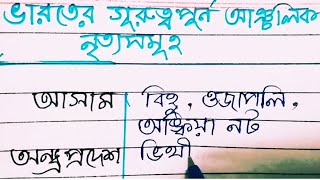 ভারতের গুরুত্বপূর্ন আঞ্চলিক
নৃত্যসমূহ
আসাম বিহু, ওজাপলি,
অঙ্কিয়া নট
অন্ধ্রপ্রদেশ ভিথী